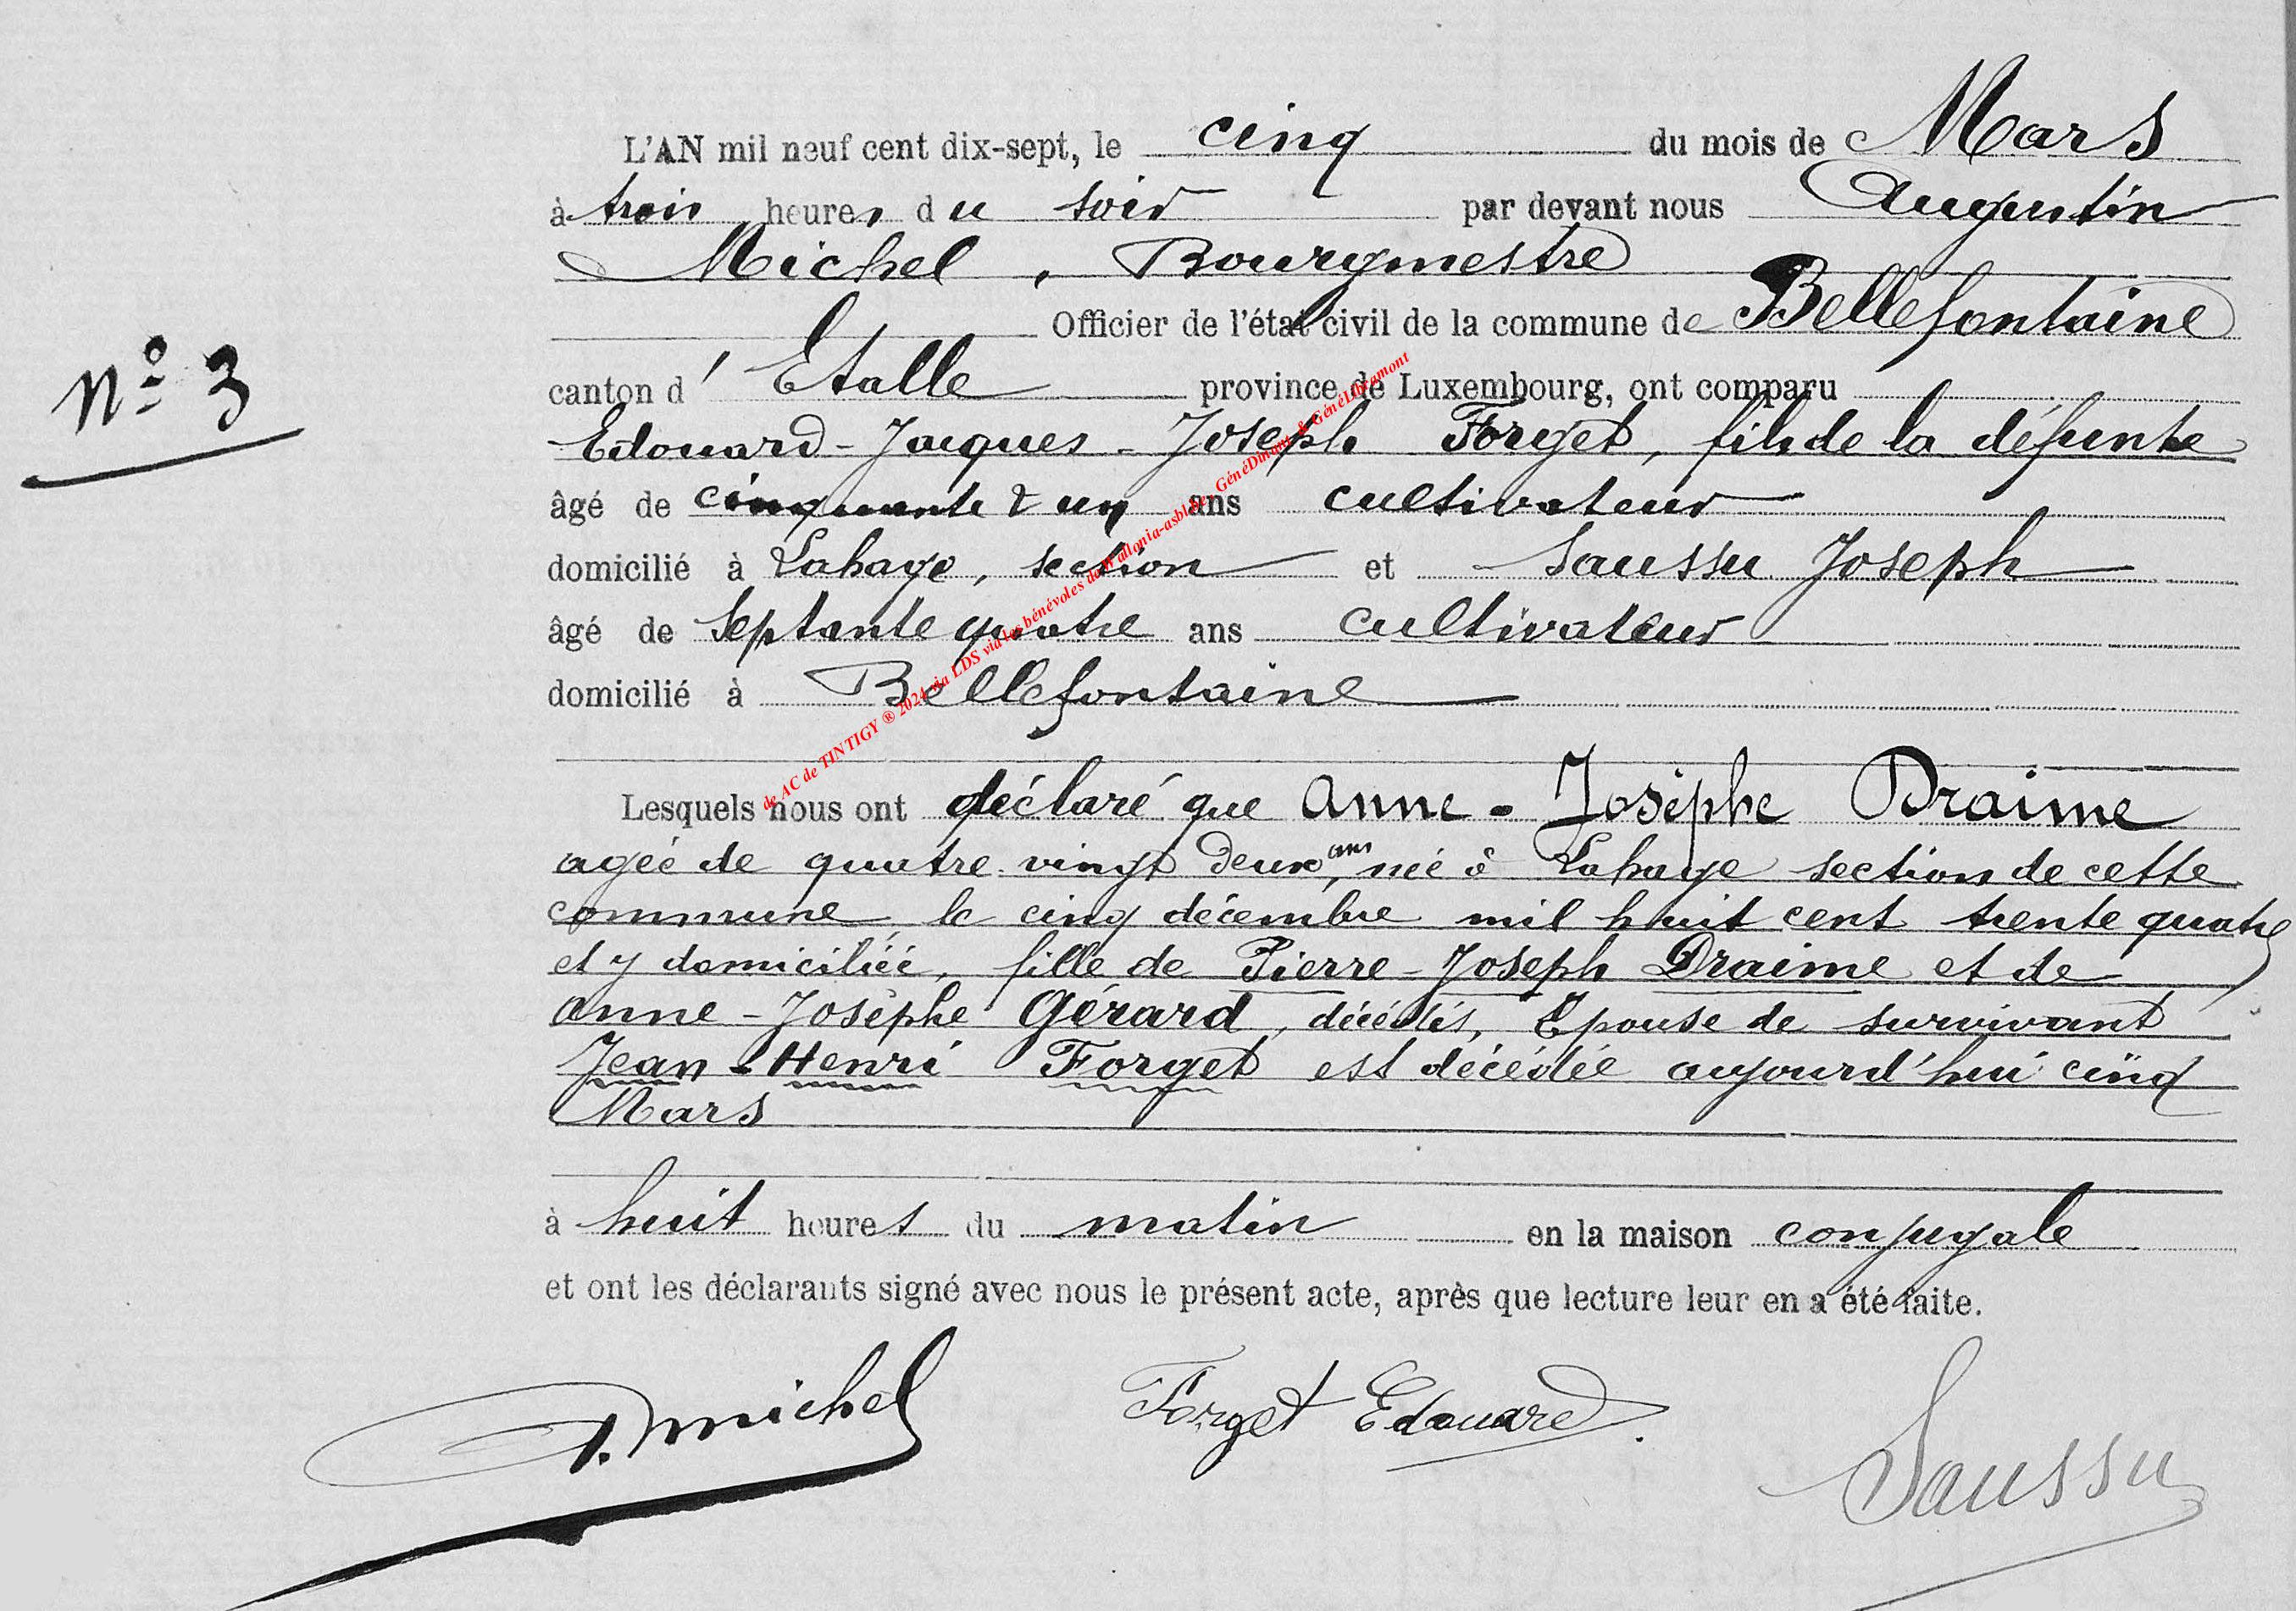 L'AN mil neuf cent dix-sept, le cinq du mois de Mars
à trois heures du soir par devant nous Augustin
Michel, Bourgmestre
Officier de l'état civil de la commune de Bellefontaine
N° 3
canton d'Etalle province de Luxembourg, ont comparu
Edouard-Jacques-Joseph Forget, fils de la défunte
âgé de cinquante & un ans cultivateur
domicilié à Lahage, section et Saussu Joseph
âgé de septante quatre ans cultivateur
domicilié à Bellefontaine
de AC de TINTIGY ® 2024 via LDS via les bénévoles de Wallonia-asbl.be - GénéDinant & GénéLibramont
Lesquels nous ont déclaré que Anne-Josèphe Draime
agée de quatre vingt deux ans, née à Lahage section de cette
commune, le cinq décembre mil huit cent trente quatre
et y domiciliée, fille de Pierre-Joseph Draime et de
Anne-Josèphe Gérard, décédés, Epouse de survivant
Jean-Henri Forget est décédée aujourd'hui cinq
Mars
à huit heures du matin en la maison conjugale
et ont les déclarants signé avec nous le présent acte, après que lecture leur en a été faite.
A. Michel Forget Edouard. Saussu